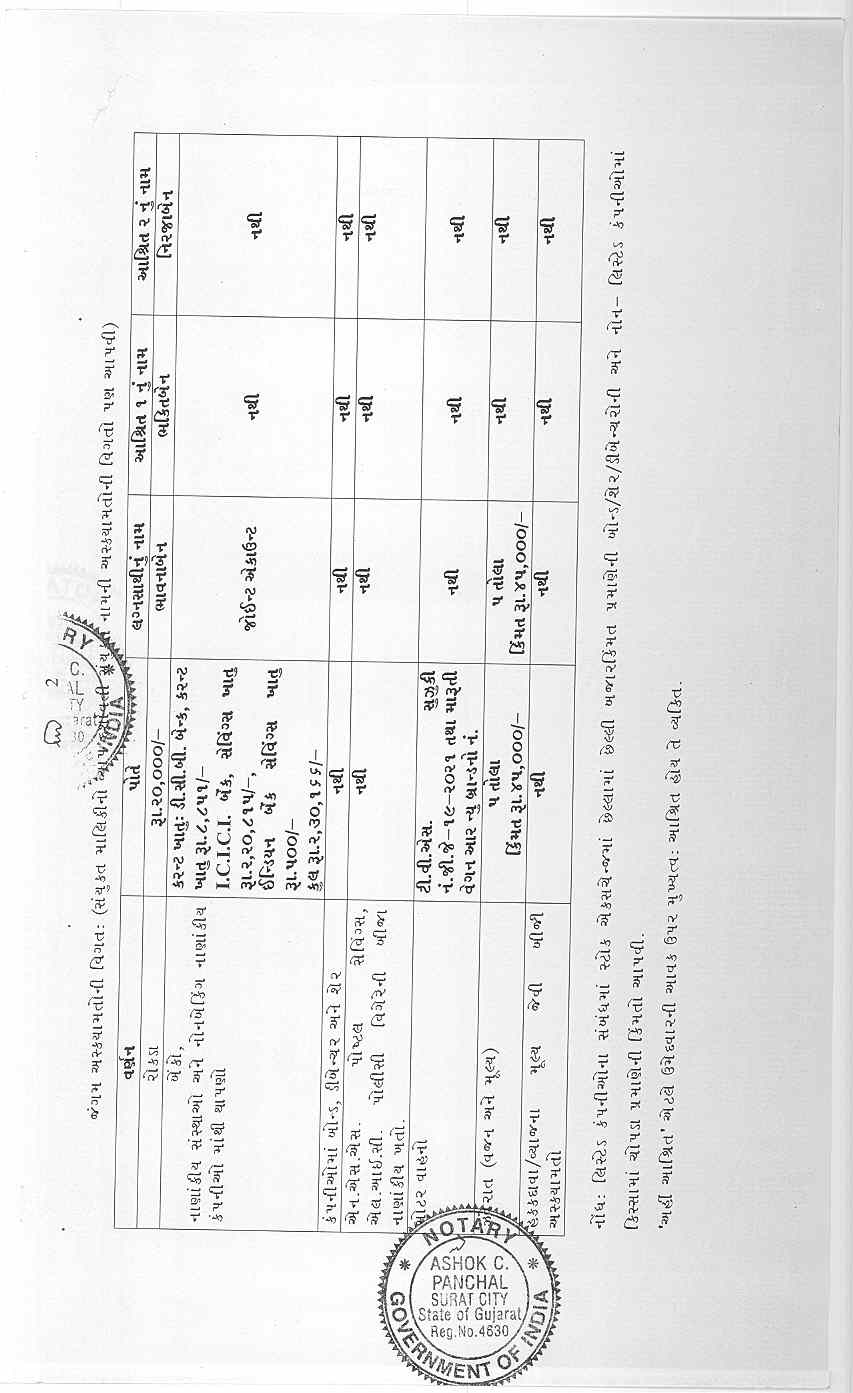 જંગમ અસ્કયામતોની વિગતઃ (સંયુકત માલિકીની નામની અસ્કયામતોની વિગતો પણ આપવી)
વર્ણન પોતે લગ્નસાથીનું નામ આશ્રિત ૧ નું નામ આશ્રિત ૨ નું નામ
રોકડા રૂા.૨૦,૦૦૦/– ભાવનાબેન ભકિતબેન નિરજાબેન
બેંકો,
નાણાંકીય સંસ્થાઓ અને નોનબેકિંગ નાણાંકીય
કંપનીઓ માંથી થાપણો
કરન્ટ ખાતુઃ ડી.સી.બી. બેન્ક, કરન્ટ
ખાતુ રૂા.૮,૮૫૧/–
I.C.I.C.I. બેંક, સેવિંગ્સ ખાતુ
રૂા.૨,૨૦,૮૧૫/–,
ઈન્ડિયન બેંક સેવિંગ્સ ખાતુ
રૂા.૫૦૦/–
કુલ રૂા.૨,૩૦,૧૬૬/–
જોઈન્ટ એકાઉન્ટ નથી નથી
કંપનીઓમાં બોન્ડ, ડીબેન્ચર અને શેર નથી નથી નથી નથી
એન.એસ.એસ. પોષ્ટલ સેવિંગ્સ,
એલ.આઈ.સી. પોલીસી વિગેરેની બીજા
નાણાંકીય ખતો.
નથી નથી નથી નથી
મોટર વાહનો
ટી.વી.એસ. સુઝુકી
નં.જી.જે–૧૯–૨૦૨૧ તથા મારૂતી
વેગન આર ન્યુ બ્રાન્ડનો નં.
નથી નથી નથી
(વજન અને મૂલ્ય) ૫ તોલા
કિંમત રૂા.૪૫,૦૦૦/–
૫ તોલા
કિંમત રૂા.૪૫,૦૦૦/–
નથી નથી
હકકદાવા/વ્યાજના મૂલ્ય જેવી બીજી
અસ્કયામતો
નથી નથી નથી નથી
નોંધઃ લિસ્ટેડ કંપનીઓના સંબંધમાં સ્ટોક એકસચેન્જમાં છેલ્લામાં છેલ્લી બજારકિંમત પ્રમાણેની બોન્ડ/શેર/ડીબેન્ચરોની અને નોન– લિસ્ટેડ કંપનીઓમાં
કિસ્સામાં ચોપડા પ્રમાણેની કિંમતો આપવી.
'અહીં આશ્રિત', એટલે ઉમેદવારની આવક ઉપર મુખ્યત્વઃ આશ્રિત હોય તે વ્યકિત.
NOTARY
ASHOK C.
PANCHAL
SURAT CITY
State of Gujarat
Reg.No.4630
GOVERNMENT OF INDIA
RY
C.
AL
TY
arat
30
INDIA
2